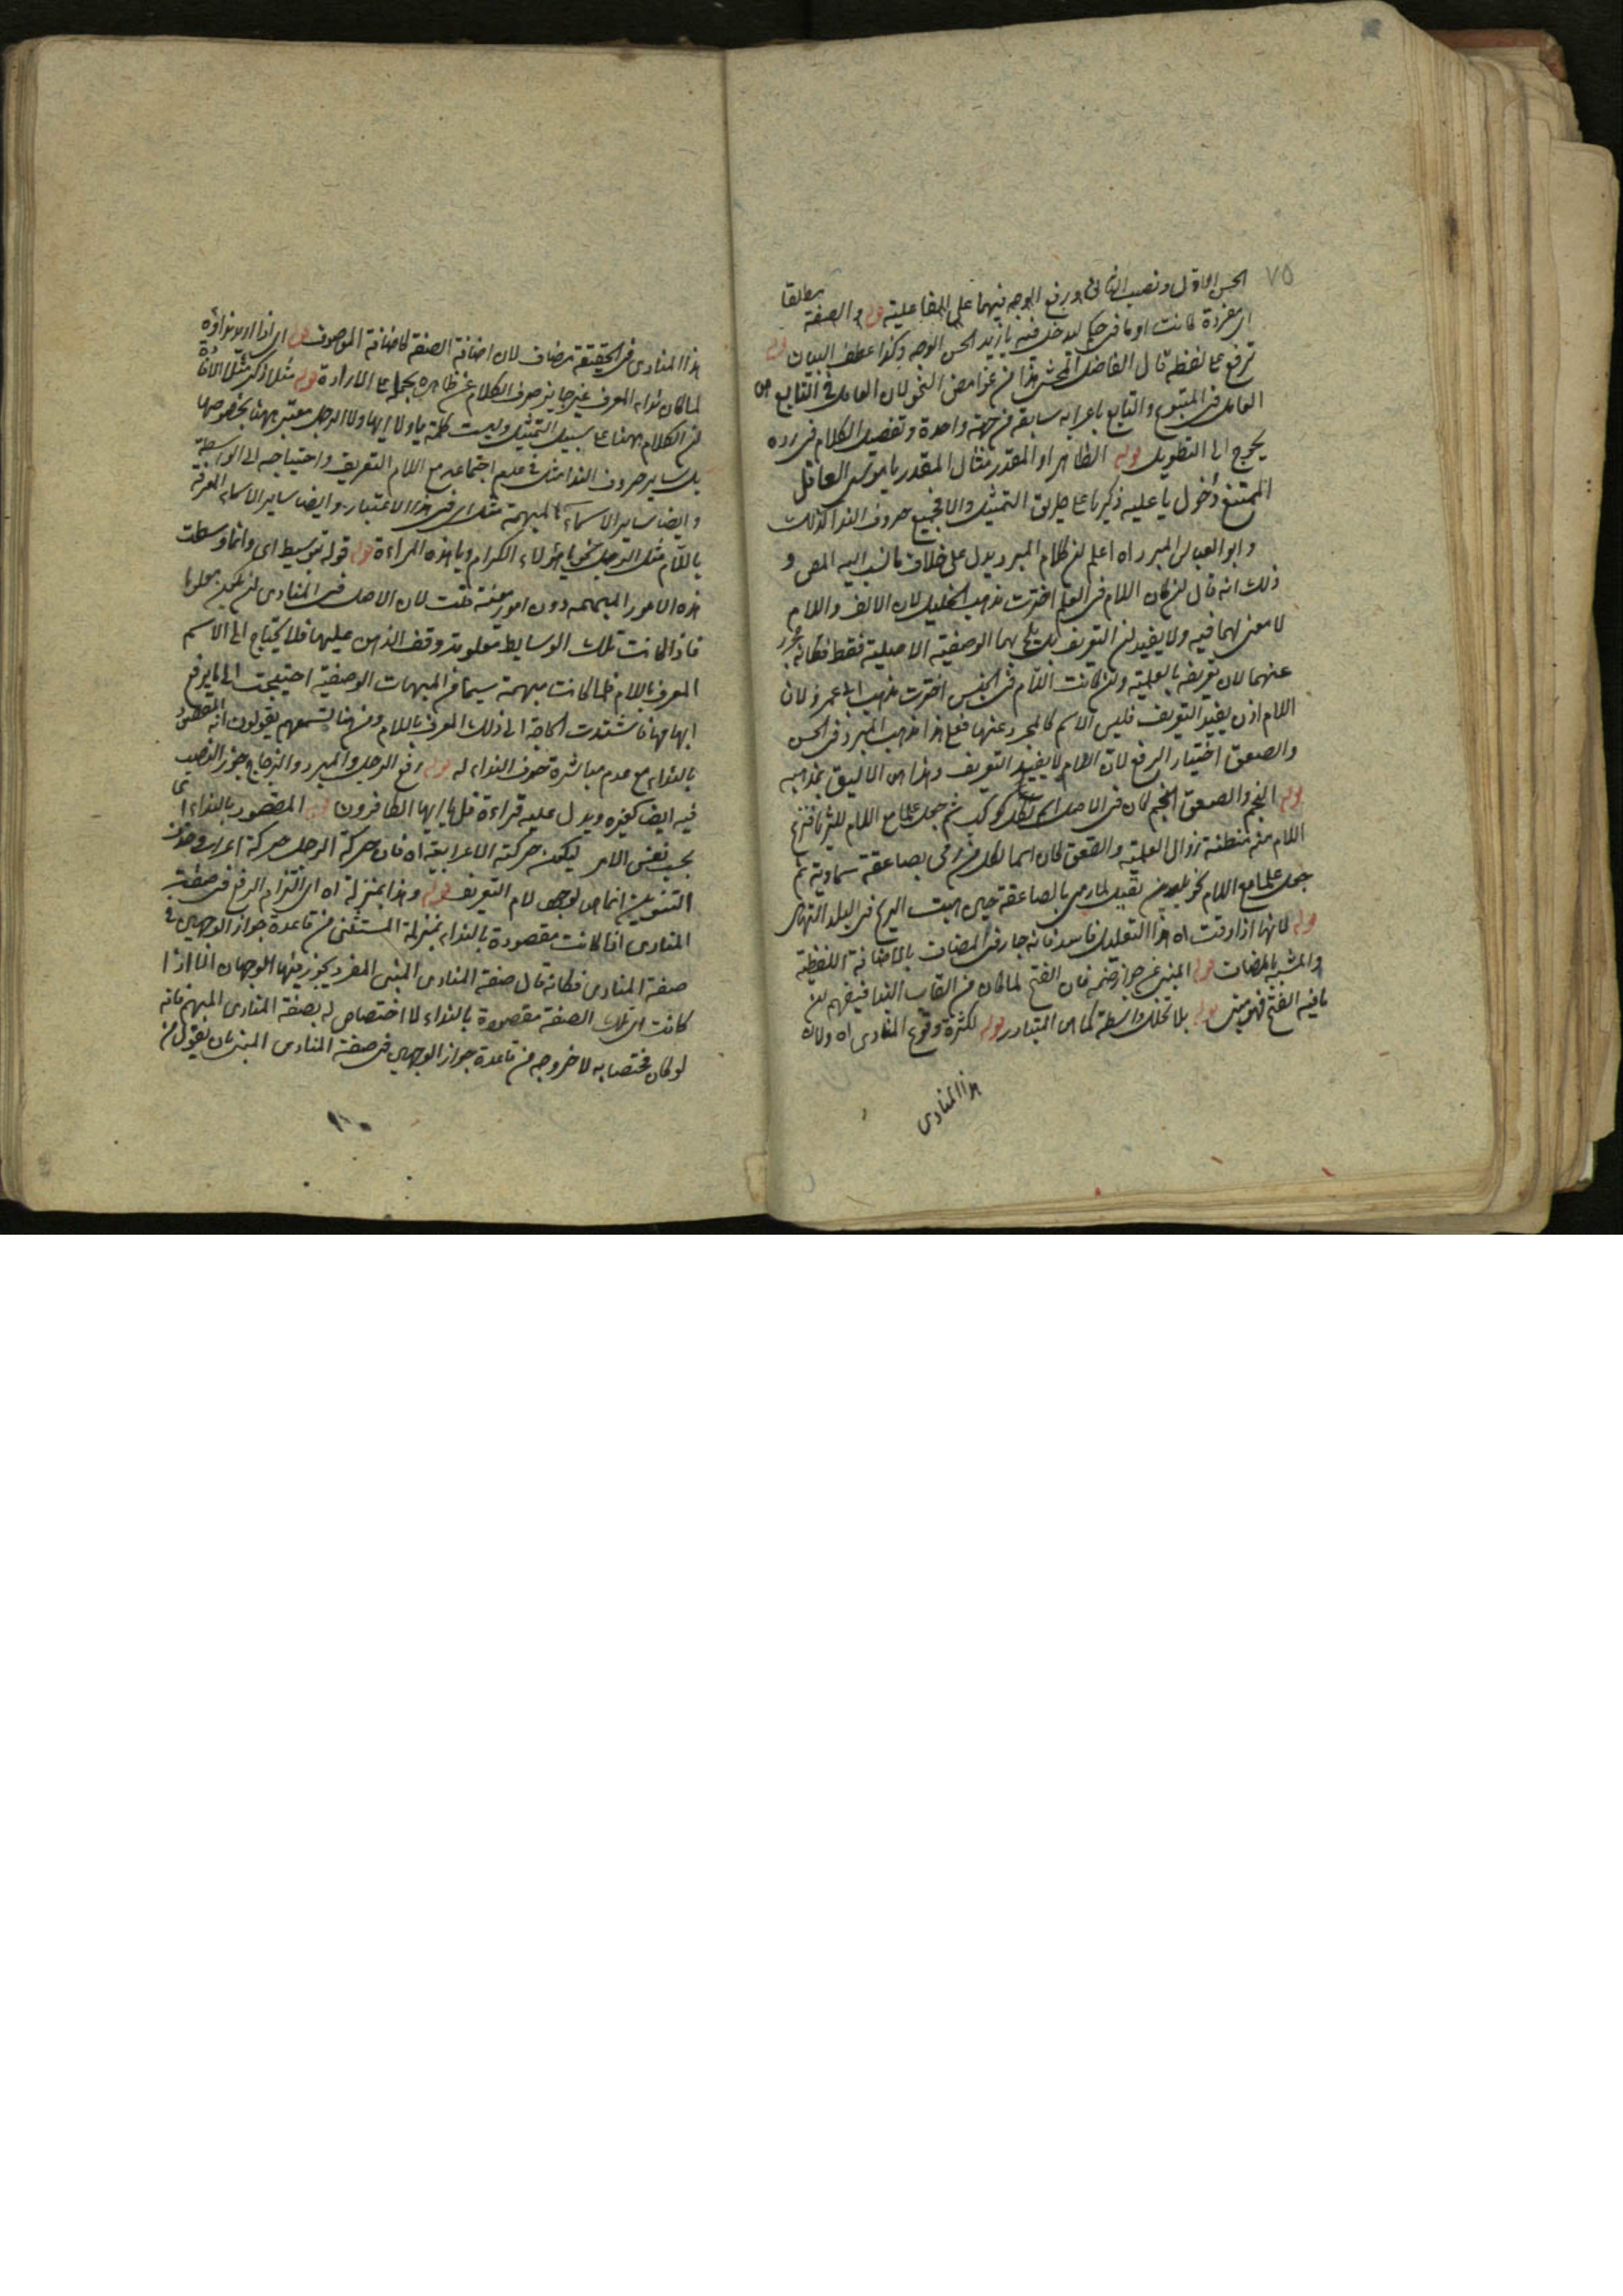 ٧٥
الحسن الاول ونصب الثانى ورفع الوجه فيهما على الفاعلية قوله والصفة مطلقا
اى مفردة كانت او ما فى حكمها ليدخل فيه يا زيد الحسن الوجه وكذا عطف البيان قوله
ترفع على لفظه قال الفاضل المحشى هذا من غوامض النحو لان العامل فى التابع هو
العامل فى المتبوع والتابع باعرابه سابقه من جهة واحدة وتفصيل الكلام فى رده
يحوج الى التطويل قوله الظاهر او المقدر مثال المقدر يا موسى العاقل
الممتنع دخول يا عليه ذكريا على طريق التمثيل والا فجميع حروف الندا كذلك
وابو العباس المبرد اه اعلم ان كلام المبرد يدل على خلاف ما نسب اليه المص و
ذلك انه قال ان كان اللام فى العلم اخترت مذهب الخليل لان الالف واللام
لا معنى لهما فيه ولا يفيدان التعريف بل يلمح بهما الوصفية الاصلية فقط فكانه مجرد
عنهما لان تعريفه بالعلمية وان كانت اللام فى الجنس اخترت مذهب ابى عمرو لان
اللام اذن يفيد التعريف فليس الاسم كالمجرد عنهما فعلى هذا مذهب المبرد فى الحسن
والصعق اختيار الرفع لان اللام لا يفيد التعريف وهذا هو الاليق بمذهبه
قوله النجم والصعق النجم كان فى الاصل اسم لكل كوكب ثم جعل علما مع اللام للثريا فنزع
اللام منه مظنة زوال العلمية والصعق كان اسما لكل من رمى بصاعقة سماوية ثم
جعل علما مع اللام لخويلد بن نفيل لما رمى بالصاعقة حين هبت الريح فى البلد التهامى
قوله لانها اذا وقت اه هذا التعليل فاسد فانه جار فى المضاف بالاضافة اللفظية
والمشبه بالمضاف قوله المبنى عن جواز ضمه فان الفتح لما كان من القاب البنا فيفهم ان
ما فيه الفتح فهو مبنى قوله بلا تخلل واسطة كما هو المتبادر قوله لكثرة وقوع المنادى اه ولان
هذا المنادى
هذا المنادى فى الحقيقة مضاف لان اضافة الصفة كاضافة الموصوف قوله اى اذا اريد نداؤه
لما كان نداء المعرف غير جايز صرف الكلام عن ظاهره بحمله على الارادة قوله مثلا ذكر مثلا
ان الكلام ههنا على سبيل التمثيل وليست كلمة يا ولا ايها ولا الرجل معتبر ههنا بخصوصها
بل ساير حروف الندا مثل يا فى عدم اجتماعه مع اللام التعريف واحتياجه الى الواسطة
وايضا ساير الاسماء المبهمة مثل اى فى هذا الاعتبار وايضا ساير الاسماء المعرفة
باللام مثل الرجل نحو يا هؤلاء الكرام ويا هذه المراءة قوله قوله بتوسيط اى وانما وسطت
هذه الامور المبهمة دون امور معينة قلت لان الاصل فى المنادى ان يكون معلوما
فاذا كانت تلك الوسايط معلومة وقف الذهن عليها فلا يحتاج الى الاسم
المعرف باللام فلما كانت مبهمة سيما من المبهمات الوصفية احتيجت الى ما يرفع
ابهامها فاشتدت الحاجة الى ذلك المعرف باللام ومن هنا تسمعهم يقولون انه المقصود
بالنداء مع عدم مباشرة حرف النداء له قوله رفع الرجل والمبرد والزجاج جوز النصب
فيه ايضا كغيره ويدل عليه قراءة قل يا ايها الكافرون قوله المقصود بالنداء اى
بحسب نفس الامر ليكون حركته الاعرابية اه فان حركة الرجل حركة اعراب وحذف
التنوين انما هو لوجود لام التعريف قوله وهذا بمنزلة اه اى التزام الرفع فى صفة
المنادى اذا كانت مقصودة بالنداء بمنزلة المستثنى من قاعدة جواز الوجهين فى
صفة المنادى فكانه قال صفة المنادى المبنى المفرد يجوز فيها الوجهان الا اذا
كانت تلك الصفة مقصودة بالنداء لا اختصاص له بصفة المنادى المبهم فانه
لو كان مختصا به لا خروجه من قاعدة جواز الوجهين فى صفة المنادى المبنى بان يقول